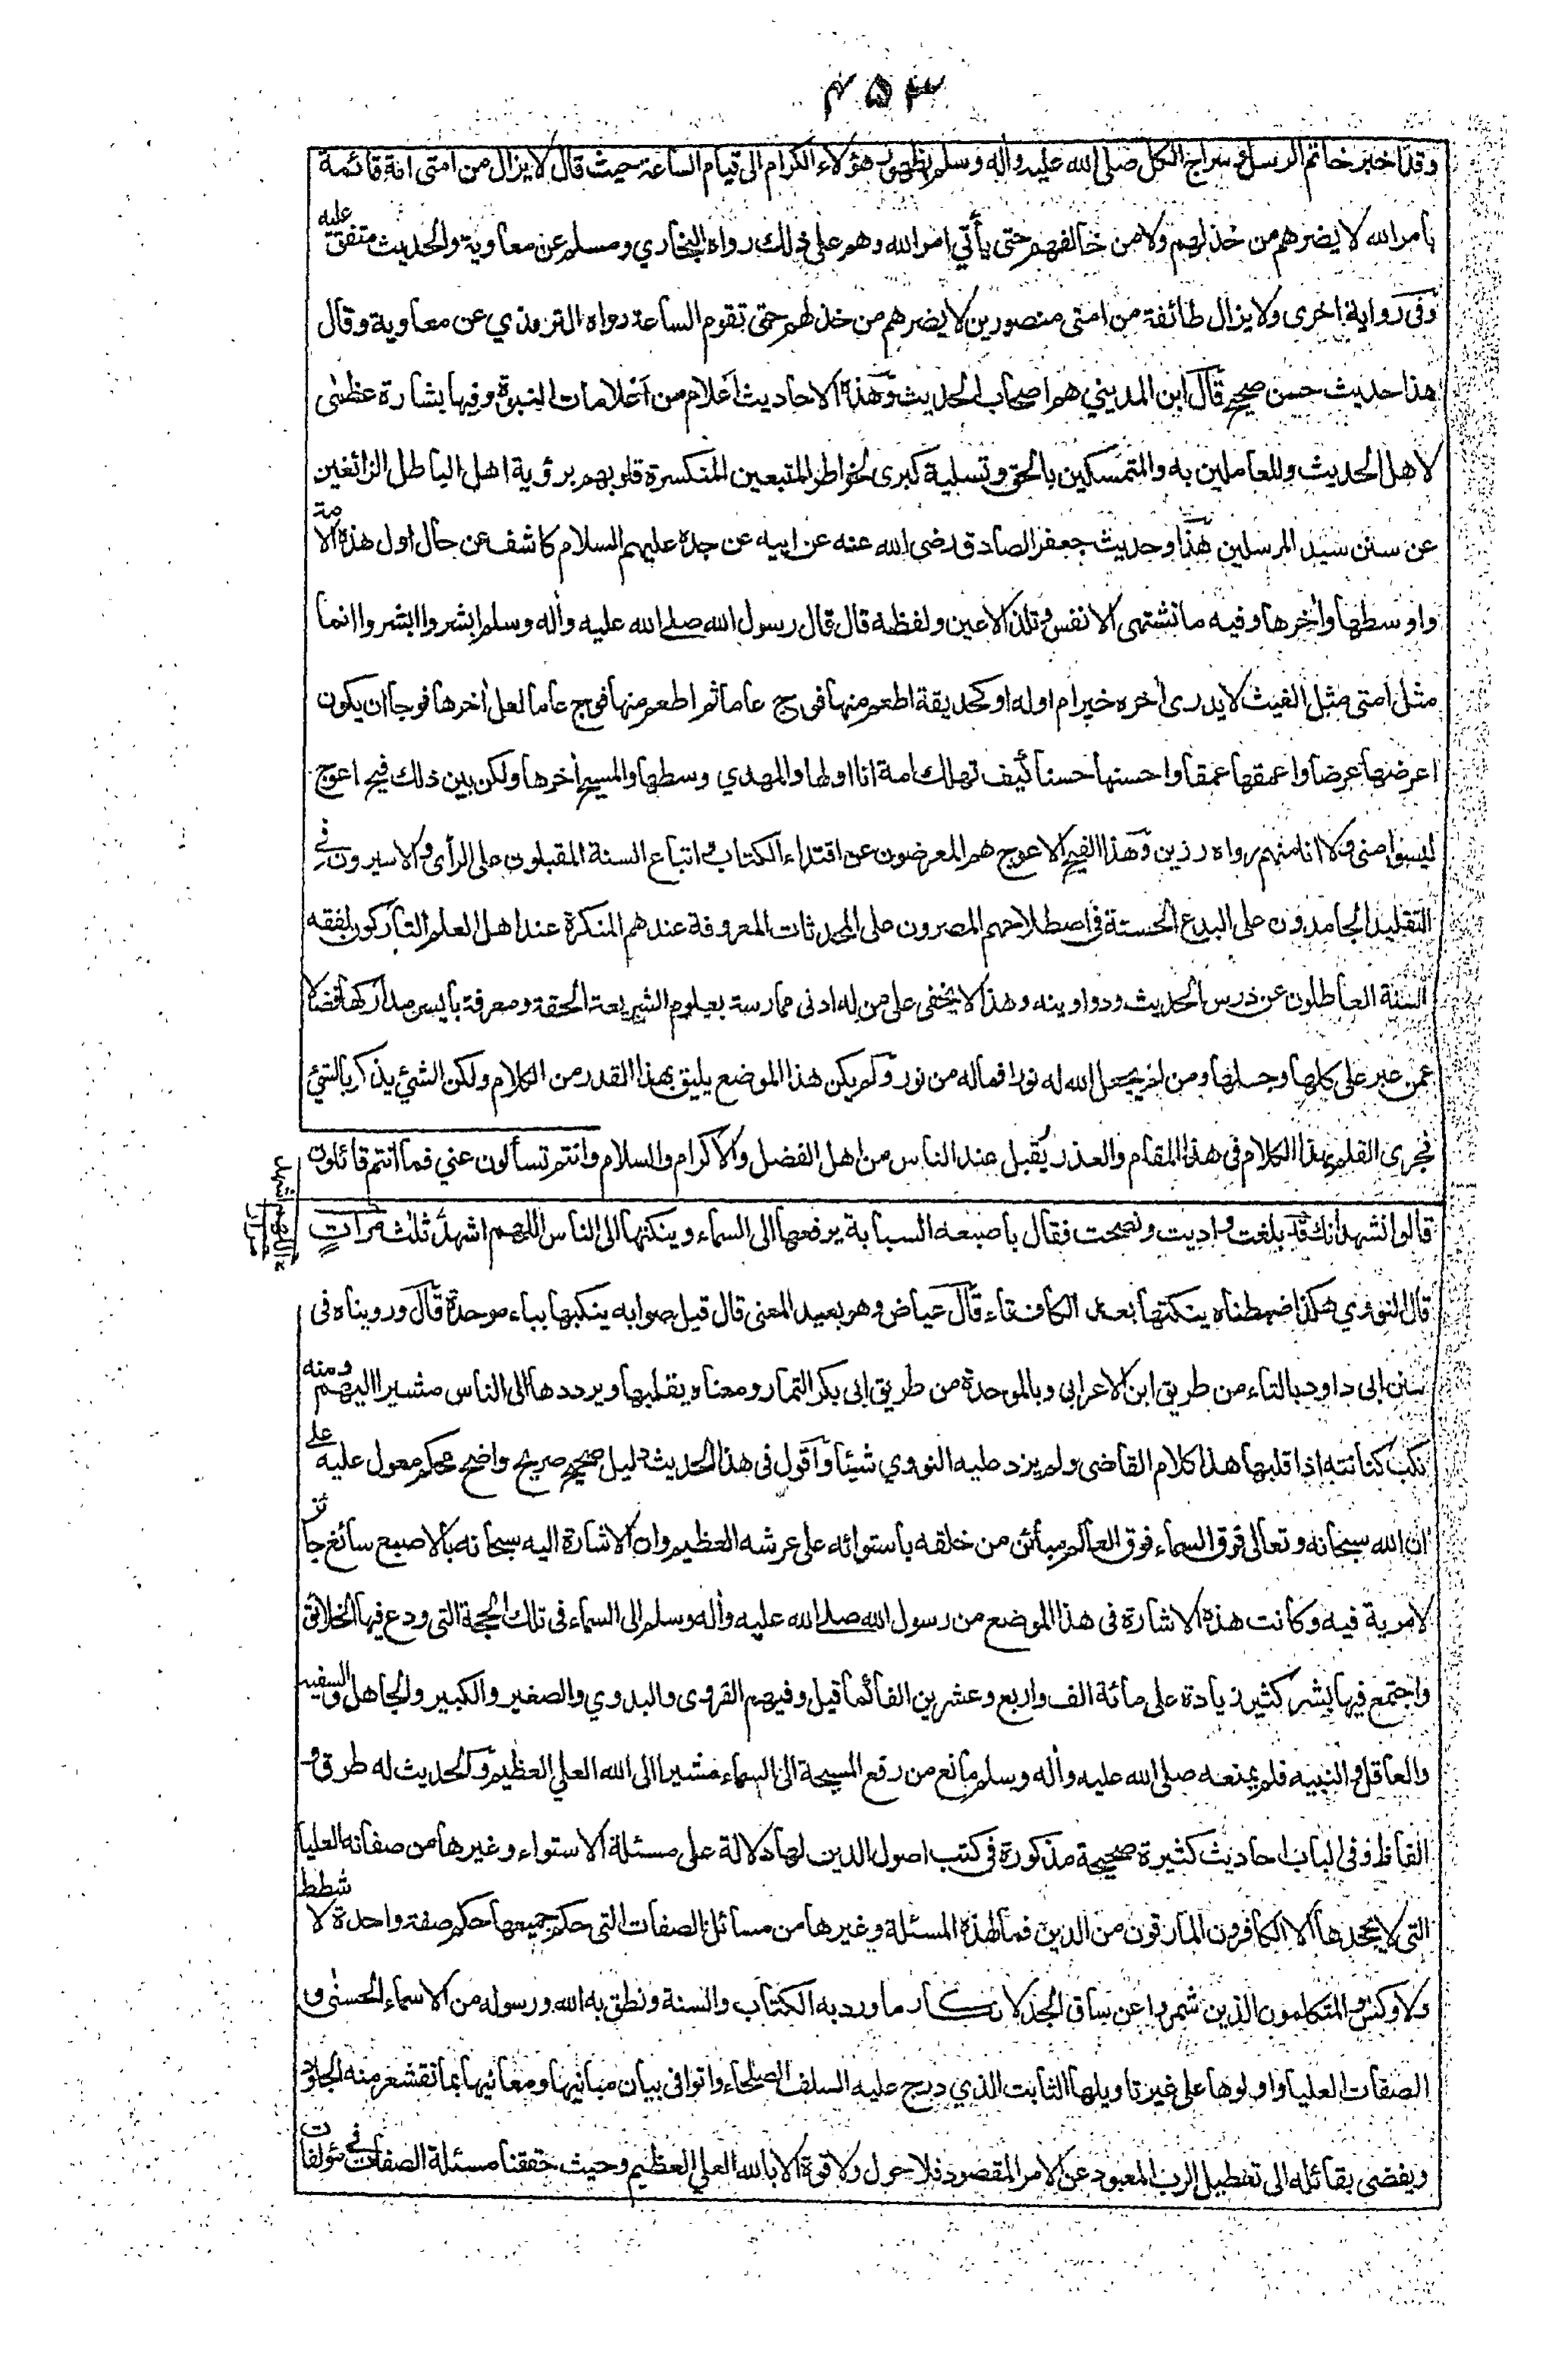 ۴۵۳
وقد اخبر خاتم الرسل وسراج الكل صلى الله عليه واٰله وسلم بظهور هؤلاء الكرام الى قيام الساعة حيث قال لا يزال من امتى امة قائمة
بامر الله لا يضرهم من خذلهم ولا من خالفهم حتى يأتي امر الله وهم على ذلك رواه البخاري ومسلم عن معاوية والحديث متفق عليه
وفى رواية اخرى ولا يزال طائفة من امتى منصورين لا يضرهم من خذلهم حتى تقوم الساعة رواه الترمذي عن معاوية وقال
هذا حديث حسن صحيح قال ابن المديني هم اصحاب الحديث وهذه الاحاديث اعلام من اعلامات النبوة وفيها بشارة عظمى
لاهل الحديث وللعاملين به والمتمسكين بالحق وتسلية كبرى لخواطر المتبعين المنكسرة قلوبهم برؤية اهل الباطل الزائغين
عن سنن سيد المرسلين هذا وحديث جعفر الصادق رضى الله عنه عن ابيه عن جده عليهم السلام كاشف عن حال اول هذه الامة
واوسطها واٰخرها وفيه ما تشتهى الانفس وتلذ الاعين ولفظه قال قال رسول الله صلے الله عليه واٰله وسلم ابشروا ابشروا انما
مثل امتى مثل الغيث لا يدرى اٰخره خير ام اوله او كحديقة اطعم منها فوج عاما ثم اطعم منها فوج عاما لعل اٰخرها فوجا ان يكون
اعرضها عرضا واعمقها عمقا واحسنها حسنا كيف تهلك امة انا اولها والمهدي وسطها والمسيح اٰخرها ولكن بين ذلك فيج اعوج
ليسوا منى ولا انا منهم رواه رزين وهذا الفيج الاعوج هم المعرضون عن اقتداء الكتاب واتباع السنة المقبلون على الرأى والاسيرون فے
التقليد الجامدون على البدع الحسنة فى اصطلاحهم المصرون على المحدثات المعروفة عندهم المنكرة عند اهل العلم التاركون لفقه
السنة العاطلون عن درس الحديث ودواوينه وهذا لا يخفى على من له ادنى ممارسة بعلوم الشريعة الحقة ومعرفة بايسر مداركها فضلا
عمن عبر على كلها وجلها ومن لم يجعل الله له نورا فماله من نور ولم يكن هذا الموضع يليق بهذا القدر من الكلام ولكن الشئ يذكر بالشئ
فجرى القلم بهذا الكلام فى هذا المقام والعذر يقبل عند الناس من اهل الفضل والاكرام والسلام وانتم تسألون عني فما انتم قائلون
قالوا نشهد انك قد بلغت واديت ونصحت فقال باصبعه السبابة يرفعها الى السماء وينكتها الى الناس اللهم اشهد ثلث مرات
اللهم اشهد
قال النووي هكذا ضبطناه ينكتها بعد الكاف تاء قال عياض وهو بعيد المعنى قال قيل صوابه ينكبها بباء موحدة قال ورويناه فى
سنن ابى داود بالتاء من طريق ابن الاعرابى وبالموحدة من طريق ابى بكر التمار ومعناه يقلبها ويرددها الى الناس مشيرا اليهم ومنه
نكب كنانته اذا قلبها هذا كلام القاضى ولم يزد عليه النووي شيئا واقول فى هذا الحديث دليل صحيح صريح واضح محكم معول عليه علے
ان الله سبحانه وتعالى فوق السماء فوق العالم مبائن من خلقه باستوائه على عرشه العظيم وان الاشارة اليه سبحانه بالاصبع سائغ جائز
لا مرية فيه وكانت هذه الاشارة فى هذا الموضع من رسول الله صلے الله عليه واٰله وسلم الى السماء فى تلك الحجة التى ودع فيها الخلائق
واجتمع فيها بشر كثير زيادة على مائة الف واربع وعشرين الفا كما قيل وفيهم القروى والبدوي والصغير والكبير والجاهل والسفيه
والعاقل والنبيه فلم يمنعه صلى الله عليه واٰله وسلم مانع من رفع المسبحة الى السماء مشيرا الى الله العلي العظيم والحديث له طرق و
الفاظ وفى الباب احاديث كثيرة صحيحة مذكورة فى كتب اصول الدين لها دلالة على مسئلة الاستواء وغيرها من صفاته العليا
التى لا يجحدها الا الكافرون المارقون من الدين فما لهذه المسئلة وغيرها من مسائل الصفات التى حكم جميعها حكم صفة واحدة لا شطط
ولا وكس والمتكلمون الذين شمروا عن ساق الجد لانكار ما ورد به الكتاب والسنة ونطق به الله ورسوله من الاسماء الحسنى و
الصفات العليا واولوها على غير تاويلها الثابت الذي درج عليه السلف الصلحاء واتوا فى بيان مبانيها ومعانيها بما تقشعر منه الجلود
ويفضى بقائله الى تعطيل الرب المعبود عن الامر المقصود فلا حول ولا قوة الا بالله العلي العظيم وحيث حققنا مسئلة الصفات فے مؤلفات